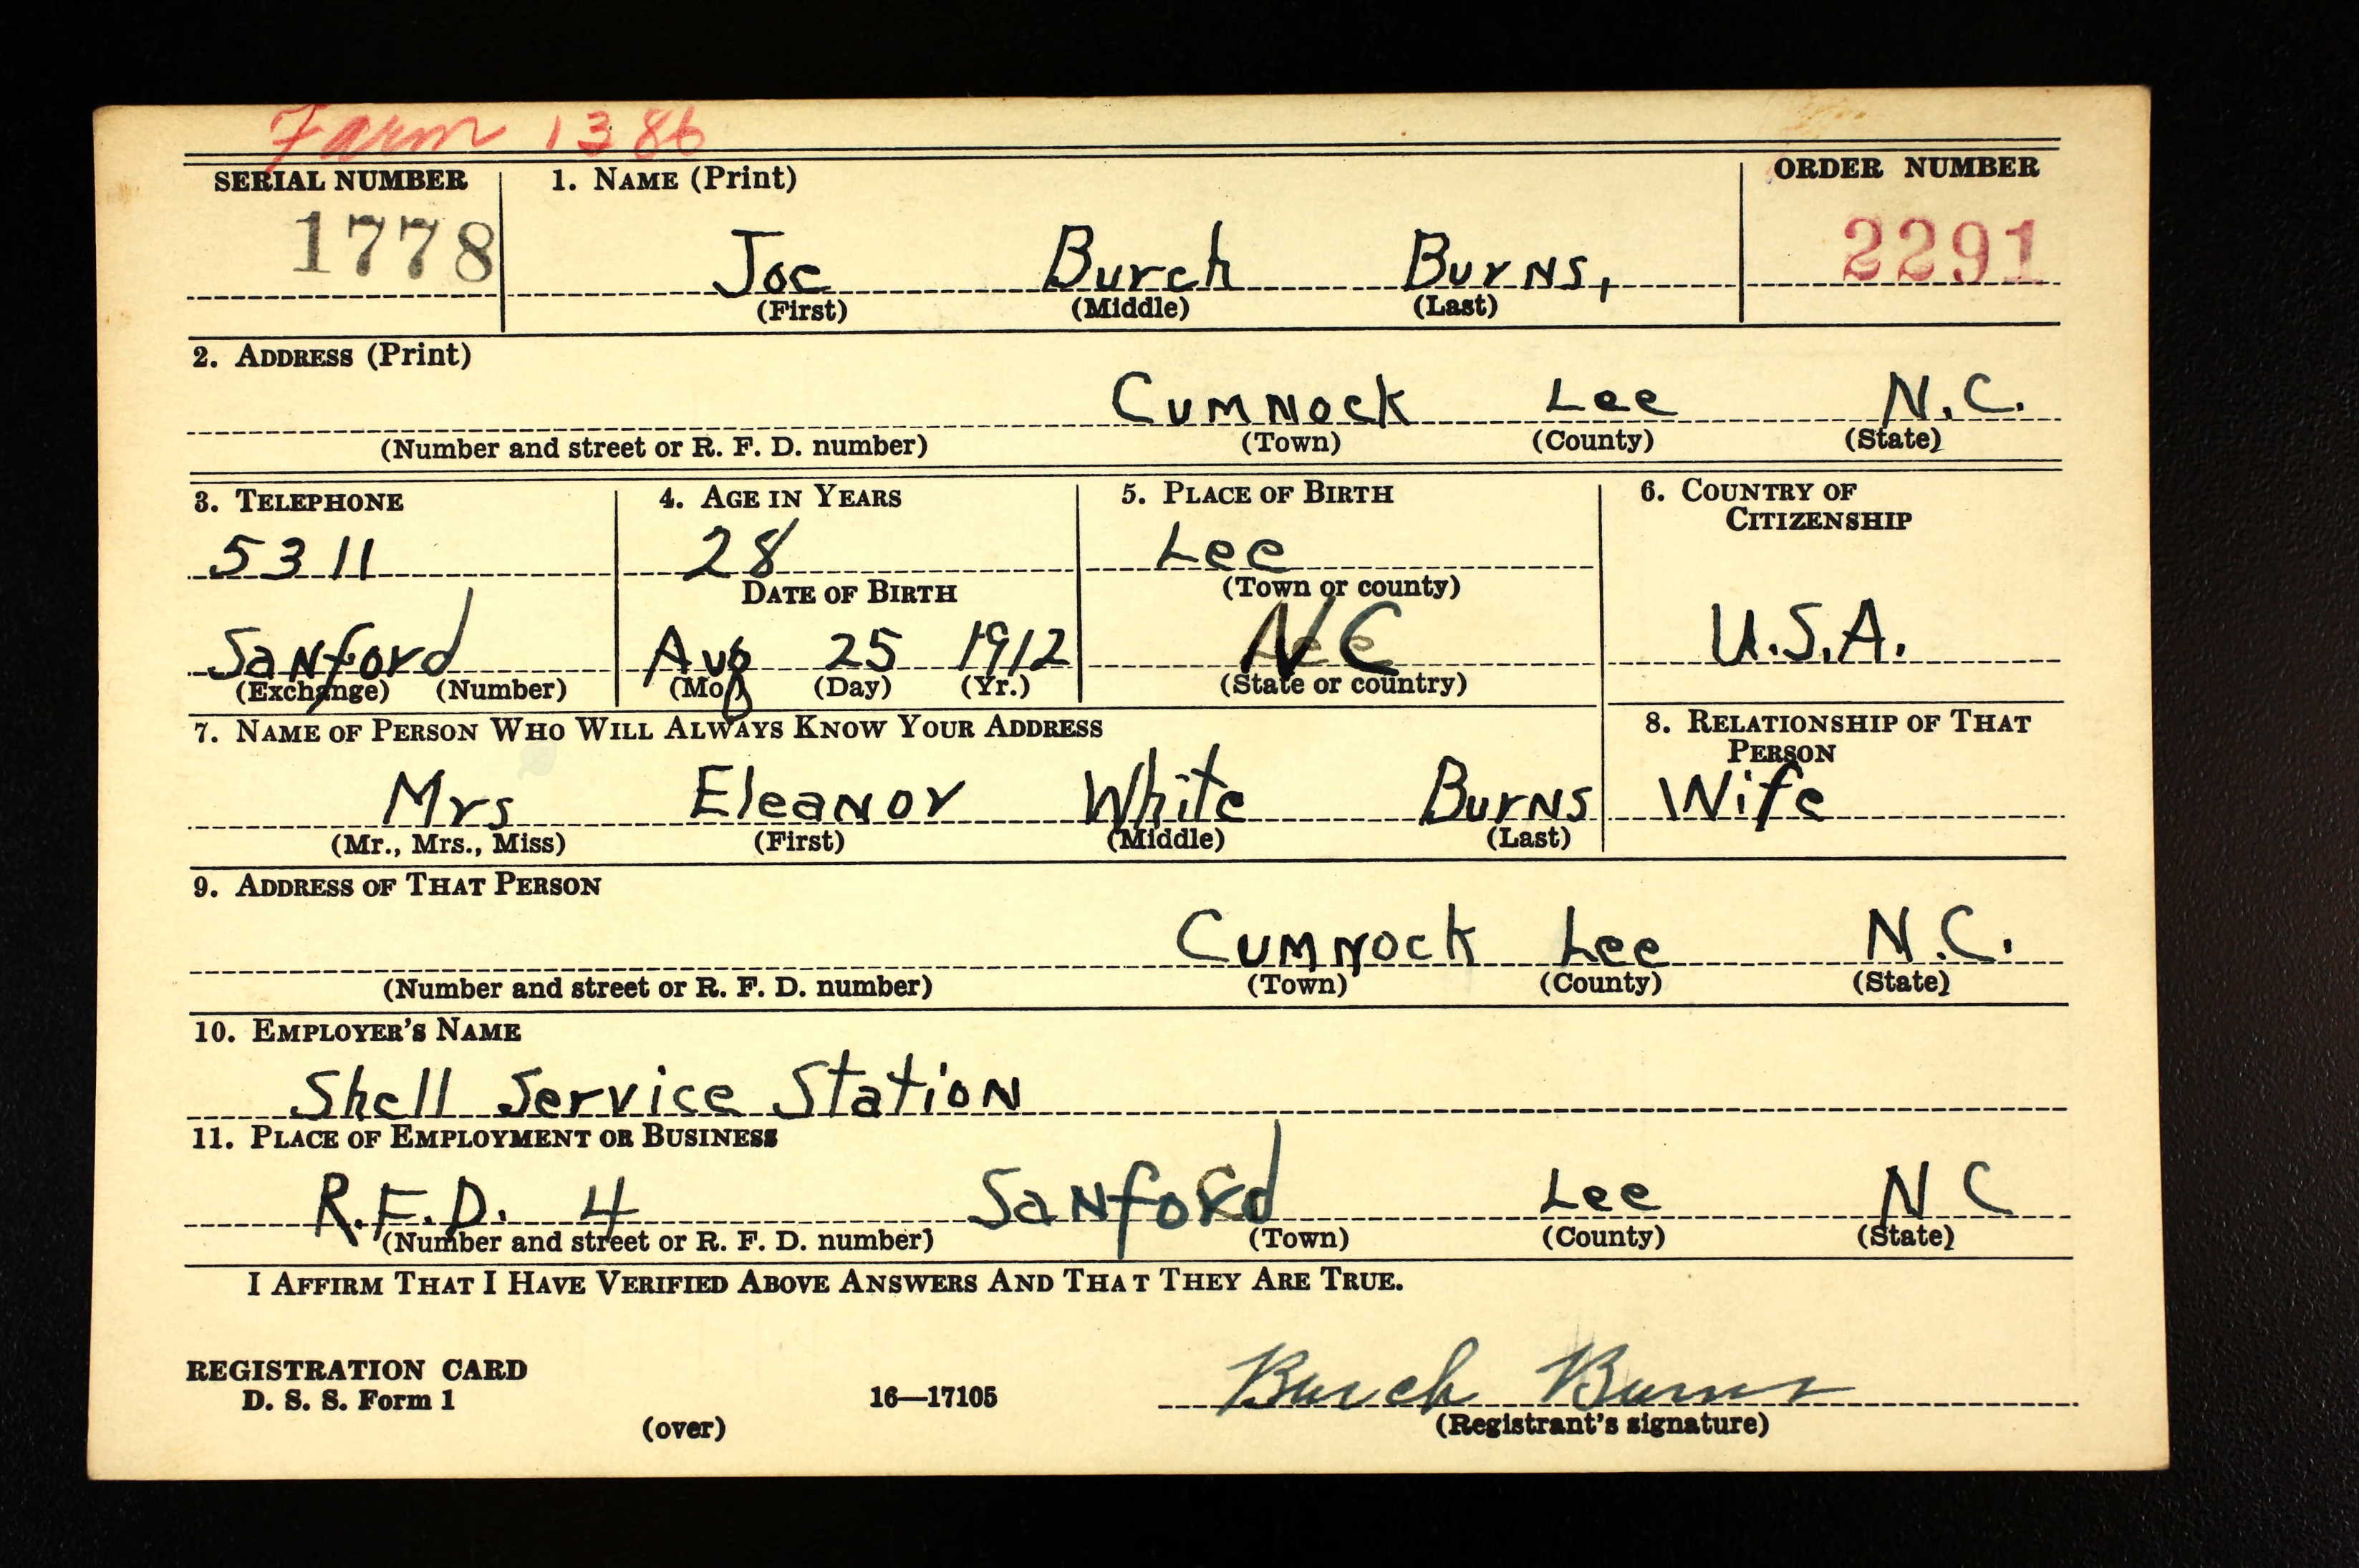 Farm 1386
SERIAL NUMBER 1. NAME (Print) ORDER NUMBER
1778 Joe Burch Burns, 2291
(First) (Middle) (Last)
2. ADDRESS (Print)
Cumnock Lee N.C.
(Number and street or R. F. D. number) (Town) (County) (State)
3. TELEPHONE 4. AGE IN YEARS 5. PLACE OF BIRTH 6. COUNTRY OF
CITIZENSHIP
5311 28 Lee
DATE OF BIRTH (Town or county)
Sanford Aug 25 1912 NC U.S.A.
(Exchange) (Number) (Mo.) (Day) (Yr.) (State or country)
7. NAME OF PERSON WHO WILL ALWAYS KNOW YOUR ADDRESS 8. RELATIONSHIP OF THAT
PERSON
Mrs Eleanor White Burns Wife
(Mr., Mrs., Miss) (First) (Middle) (Last)
9. ADDRESS OF THAT PERSON
Cumnock Lee N.C.
(Number and street or R. F. D. number) (Town) (County) (State)
10. EMPLOYER'S NAME
Shell Service Station
11. PLACE OF EMPLOYMENT OR BUSINESS
R.F.D. 4 Sanford Lee N C
(Number and street or R. F. D. number) (Town) (County) (State)
I AFFIRM THAT I HAVE VERIFIED ABOVE ANSWERS AND THAT THEY ARE TRUE.
Burch Burns
REGISTRATION CARD
D. S. S. Form 1 16—17105
(over) (Registrant's signature)